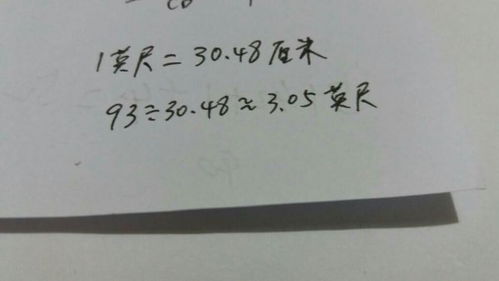 1英尺=30.48厘米
93÷30.48≈3.05英尺